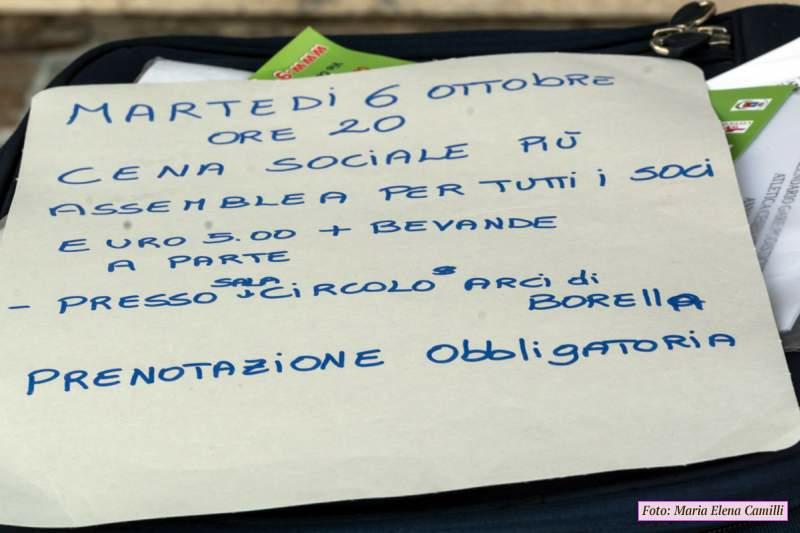 MARTEDì 6 OTTOBRE
ORE 20
CENA SOCIALE PIÙ
ASSEMBLEA PER TUTTI i SOCI
EURO 5.00 + BEVANDE
A PARTE
SALA
- PRESSO CIRCOLO ARCI di
BORELLA
PRENOTAZIONE ObbligATORIA
www.g
ATLETICA
Foto: Maria Elena Camilli